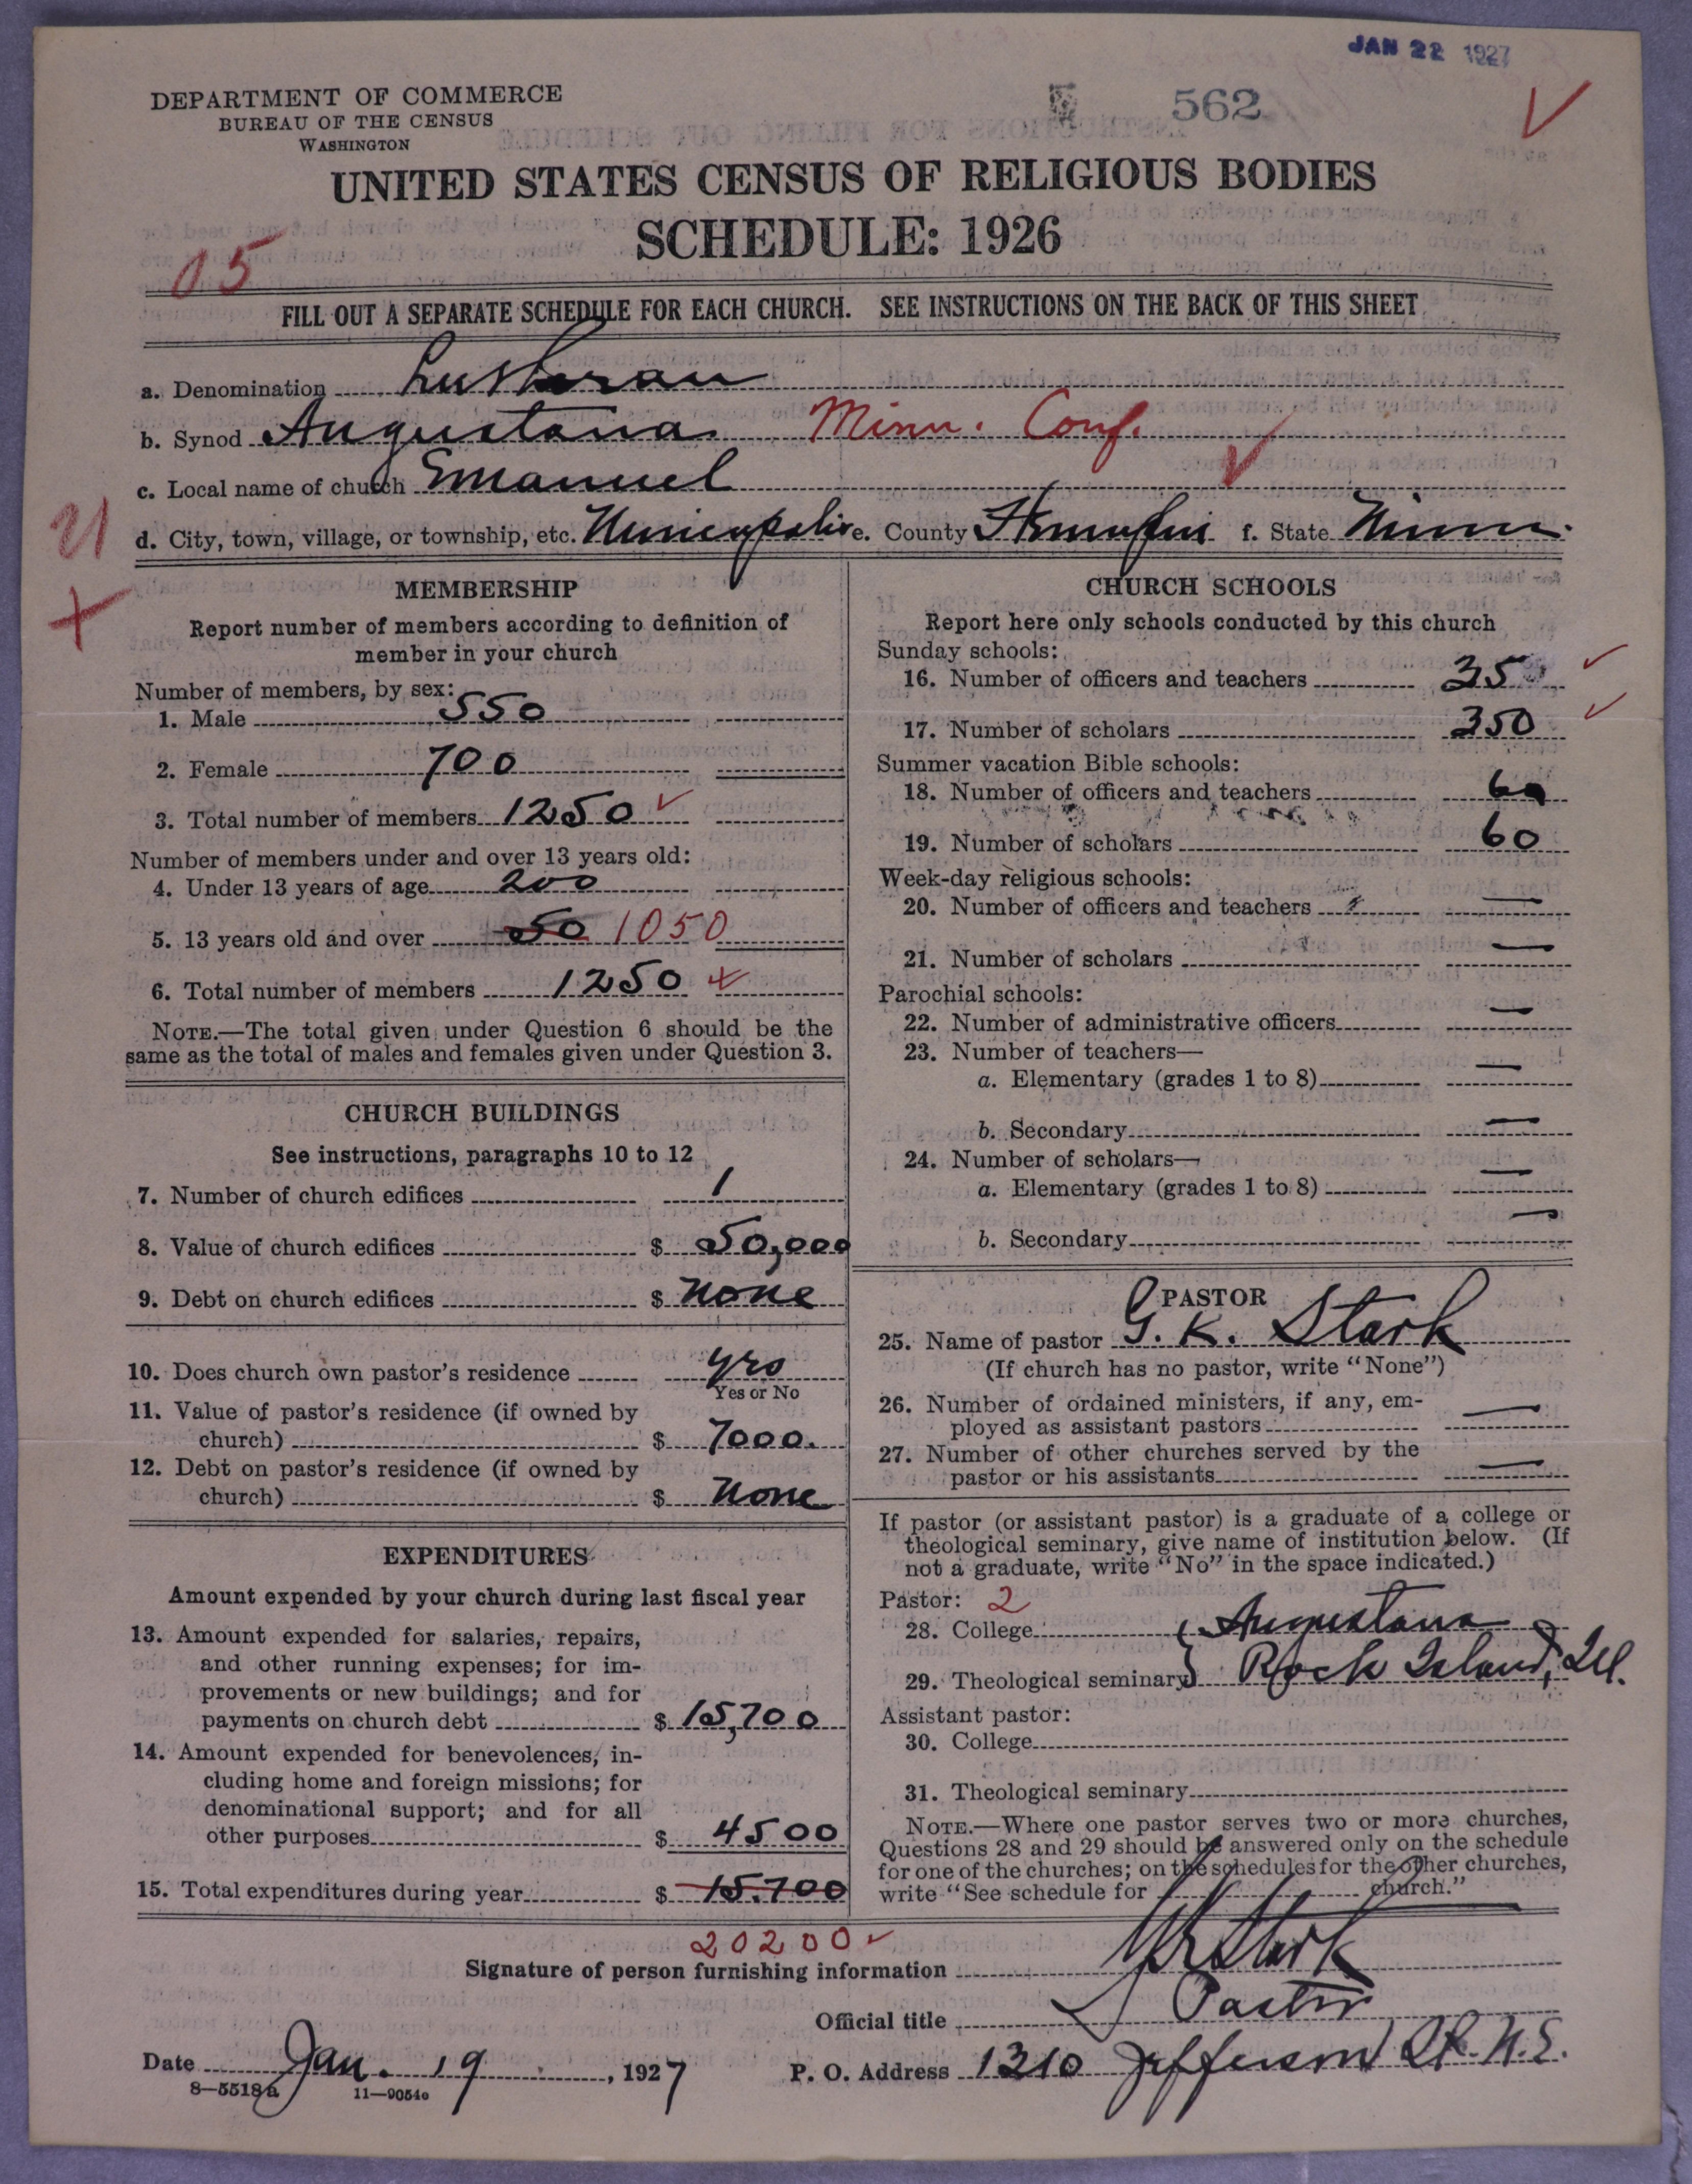 JAN 22 1927
DEPARTMENT OF COMMERCE
BUREAU OF THE CENSUS
WASHINGTON
562
UNITED STATES CENSUS OF RELIGIOUS BODIES
SCHEDULE: 1926
05
FILL OUT A SEPARATE SCHEDULE FOR EACH CHURCH. SEE INSTRUCTIONS ON THE BACK OF THIS SHEET
a. Denomination Lutheran
b. Synod Augustana Minn. Conf.
c. Local name of church Emanuel
21
d. City, town, village, or township, etc. Minneapolis e. County Hennepin f. State Minn.
MEMBERSHIP
Report number of members according to definition of
member in your church
Number of members, by sex:
1. Male 550
2. Female 700
3. Total number of members 1250
Number of members under and over 13 years old:
4. Under 13 years of age 200
5. 13 years old and over 50 1050
6. Total number of members 1250
NOTE.—The total given under Question 6 should be the
same as the total of males and females given under Question 3.
CHURCH BUILDINGS
See instructions, paragraphs 10 to 12
7. Number of church edifices 1
8. Value of church edifices $ 50,000
9. Debt on church edifices $ None
10. Does church own pastor's residence yes
Yes or No
11. Value of pastor's residence (if owned by
church) $ 7000.
12. Debt on pastor's residence (if owned by
church) $ None
EXPENDITURES
Amount expended by your church during last fiscal year
13. Amount expended for salaries, repairs,
and other running expenses; for im-
provements or new buildings; and for
payments on church debt $ 15,700
14. Amount expended for benevolences, in-
cluding home and foreign missions; for
denominational support; and for all
other purposes $ 4500
15. Total expenditures during year $ 15.700
20200
CHURCH SCHOOLS
Report here only schools conducted by this church
Sunday schools:
16. Number of officers and teachers 35
17. Number of scholars 350
Summer vacation Bible schools:
18. Number of officers and teachers
19. Number of scholars 60
Week-day religious schools:
20. Number of officers and teachers —
21. Number of scholars —
Parochial schools:
22. Number of administrative officers —
23. Number of teachers—
a. Elementary (grades 1 to 8) —
b. Secondary —
24. Number of scholars—
a. Elementary (grades 1 to 8) —
b. Secondary —
PASTOR
25. Name of pastor G. K. Stark
(If church has no pastor, write "None")
26. Number of ordained ministers, if any, em-
ployed as assistant pastors —
27. Number of other churches served by the
pastor or his assistants —
If pastor (or assistant pastor) is a graduate of a college or
theological seminary, give name of institution below. (If
not a graduate, write "No" in the space indicated.)
Pastor: 2
28. College Augustana
29. Theological seminary Rock Island, Ill.
Assistant pastor:
30. College
31. Theological seminary
NOTE.—Where one pastor serves two or more churches,
Questions 28 and 29 should be answered only on the schedule
for one of the churches; on the schedules for the other churches,
write "See schedule for church."
Signature of person furnishing information GK Stark
Official title Pastor
Date Jan. 19, 1927 P. O. Address 1310 Jefferson St. N.E.
8—5518a 11—9054a